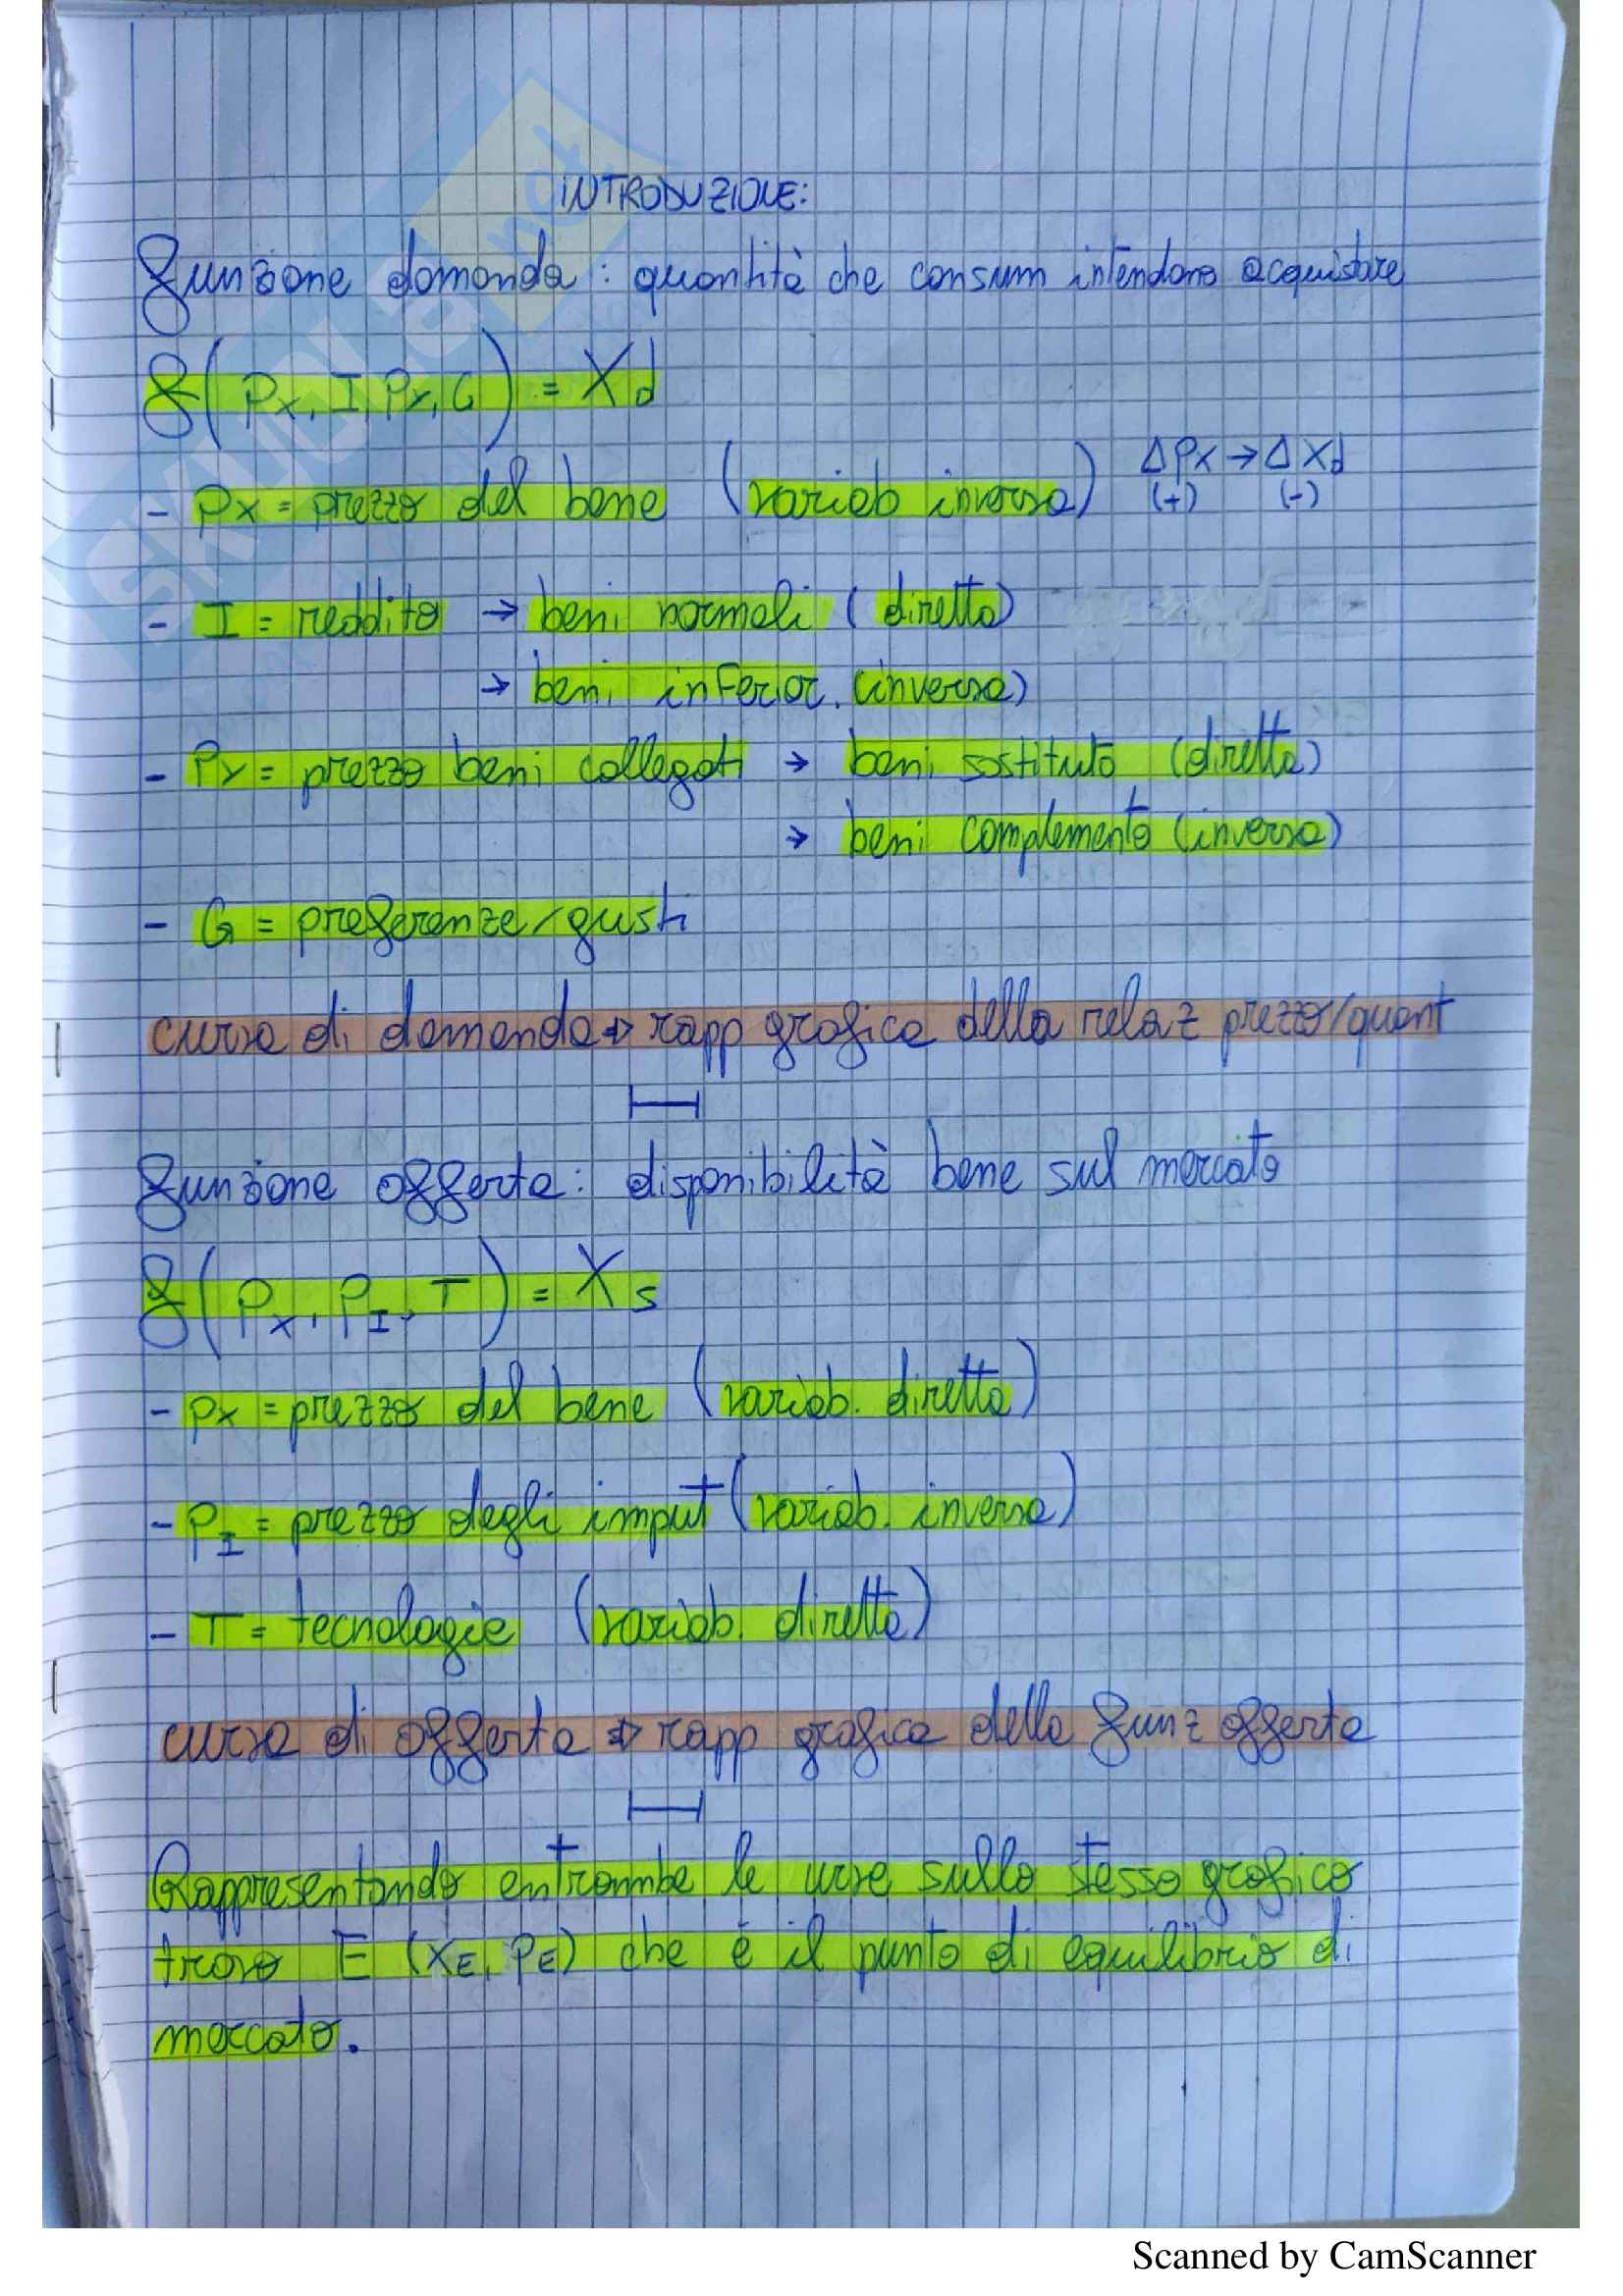 INTRODUZIONE:
funzione domanda: quantità che consum intendono acquistare
f(Px, I, Py, G) = Xd
- Px = prezzo del bene (variab inversa) ΔPx → ΔXd
(+) (-)
- I = reddito → beni normali (diretta)
→ beni inferior. (inversa)
- Py = prezzo beni collegati → beni sostituto (diretta)
→ beni complemento (inversa)
- G = preferenze/gusti
curva di domanda → rapp grafica della relaz prezzo/quant
funzione offerta: disponibilità bene sul mercato
f(Px, PI, T) = Xs
- Px = prezzo del bene (variab. diretta)
- PI = prezzo degli imput (variab. inversa)
- T = tecnologie (variab. diretta)
curva di offerta → rapp grafica della funz offerta
Rappresentando entrambe le curve sullo stesso grafico
trovo E (XE, PE) che è il punto di equilibrio di
mercato.
Scanned by CamScanner